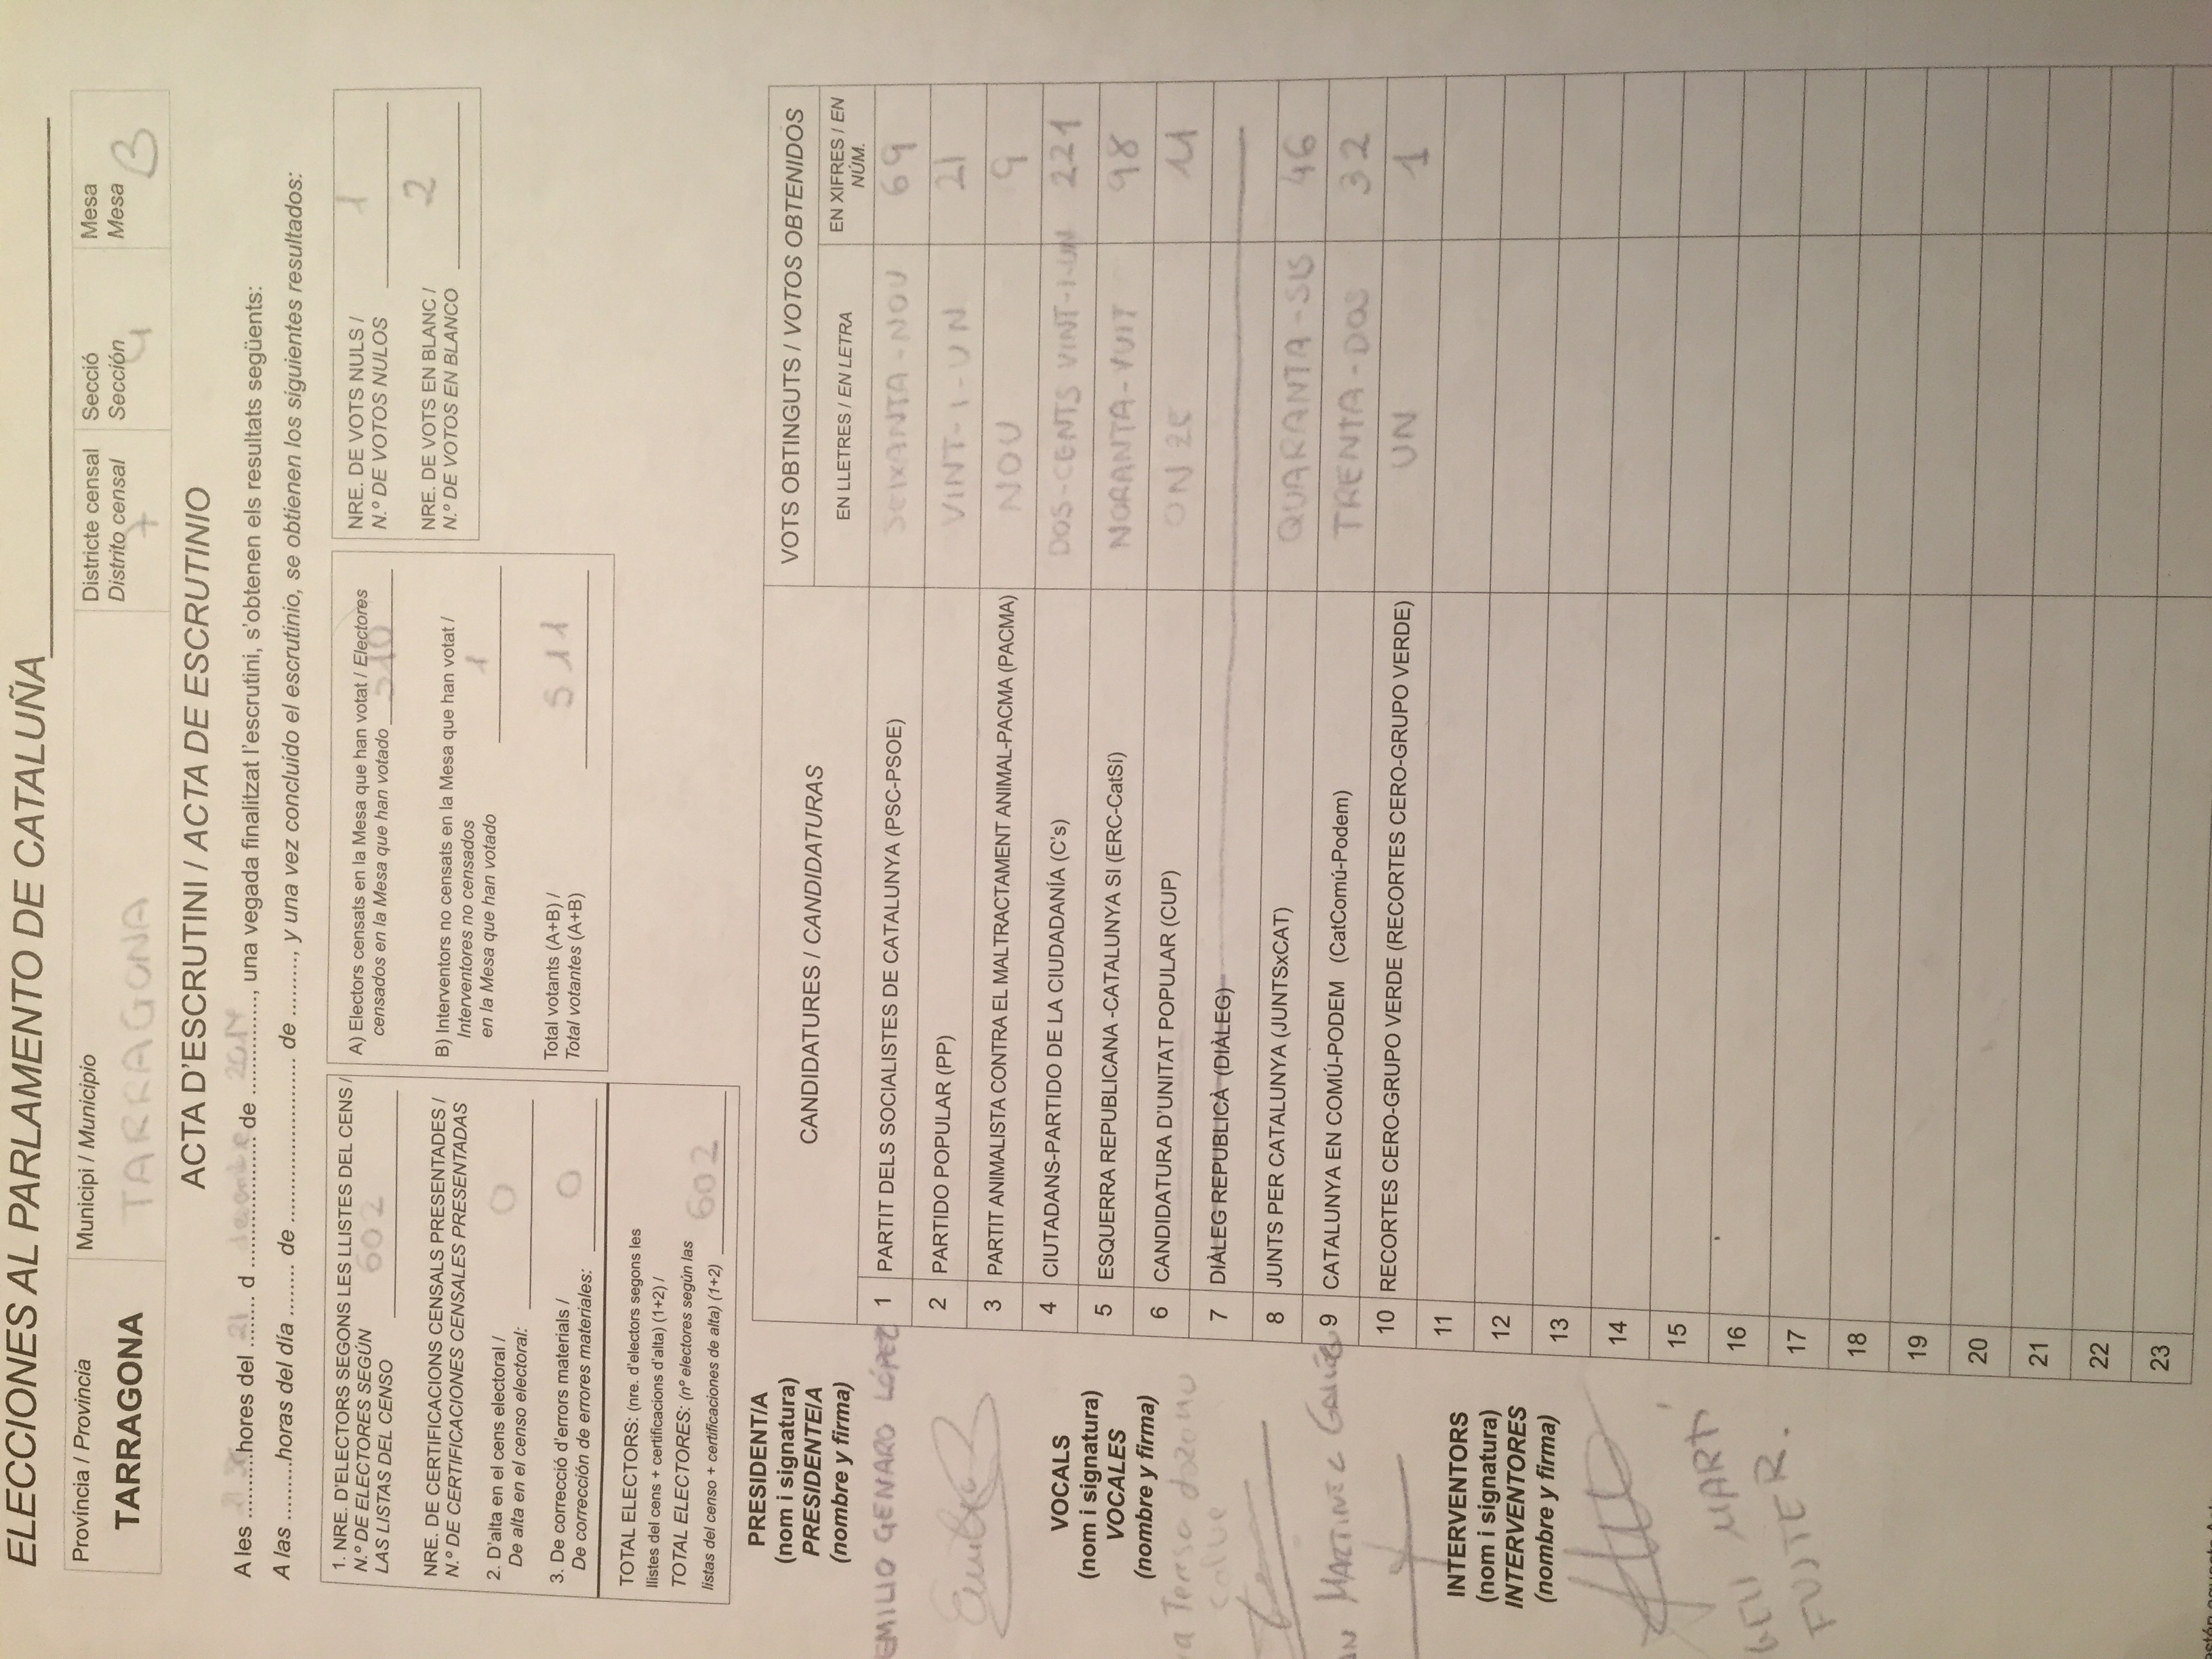 ELECCIONES AL PARLAMENTO DE CATALUÑA
Província / Provincia
TARRAGONA
Municipi / Municipio
TARRAGONA
Districte censal
Distrito censal
7
Secció
Sección
4
Mesa
Mesa
B
ACTA D'ESCRUTINI / ACTA DE ESCRUTINIO
A les ..........hores del 21 d desembre de 2017, una vegada finalitzat l'escrutini, s'obtenen els resultats següents:
A las .........horas del día ........ de ......................... de ........., y una vez concluido el escrutinio, se obtienen los siguientes resultados:
1. NRE. D'ELECTORS SEGONS LES LLISTES DEL CENS /
N.º DE ELECTORES SEGÚN
LAS LISTAS DEL CENSO 602
NRE. DE CERTIFICACIONS CENSALS PRESENTADES /
N.º DE CERTIFICACIONES CENSALES PRESENTADAS
2. D'alta en el cens electoral /
De alta en el censo electoral: 0
3. De correcció d'errors materials /
De corrección de errores materiales: 0
TOTAL ELECTORS: (nre. d'electors segons les
llistes del cens + certificacions d'alta) (1+2) /
TOTAL ELECTORES: (nº electores según las
listas del censo + certificaciones de alta) (1+2) 602
A) Electors censats en la Mesa que han votat / Electores
censados en la Mesa que han votado 510
B) Interventors no censats en la Mesa que han votat /
Interventores no censados
en la Mesa que han votado 1
Total votants (A+B) /
Total votantes (A+B) 511
NRE. DE VOTS NULS /
N.º DE VOTOS NULOS 1
NRE. DE VOTS EN BLANC /
N.º DE VOTOS EN BLANCO 2
PRESIDENT/A
(nom i signatura)
PRESIDENTE/A
(nombre y firma)
EMILIO GENARO LÓPEZ
VOCALS
(nom i signatura)
VOCALES
(nombre y firma)
Teresa
MARTINEZ
INTERVENTORS
(nom i signatura)
INTERVENTORES
(nombre y firma)
MARTÍ
FUSTER.
CANDIDATURES / CANDIDATURAS
VOTS OBTINGUTS / VOTOS OBTENIDOS
EN LLETRES / EN LETRA
EN XIFRES / EN
NÚM.
1 PARTIT DELS SOCIALISTES DE CATALUNYA (PSC-PSOE) SEIXANTA-NOU 69
2 PARTIDO POPULAR (PP) VINT-I-UN 21
3 PARTIT ANIMALISTA CONTRA EL MALTRACTAMENT ANIMAL-PACMA (PACMA) NOU 9
4 CIUTADANS-PARTIDO DE LA CIUDADANÍA (C's) DOS-CENTS VINT-I-UN 221
5 ESQUERRA REPUBLICANA -CATALUNYA SI (ERC-CatSí) NORANTA-VUIT 98
6 CANDIDATURA D'UNITAT POPULAR (CUP) ONZE 11
7 DIÀLEG REPUBLICÀ (DIÀLEG)
8 JUNTS PER CATALUNYA (JUNTSxCAT) QUARANTA-SIS 46
9 CATALUNYA EN COMÚ-PODEM (CatComú-Podem) TRENTA-DOS 32
10 RECORTES CERO-GRUPO VERDE (RECORTES CERO-GRUPO VERDE) UN 1
11
12
13
14
15
16
17
18
19
20
21
22
23